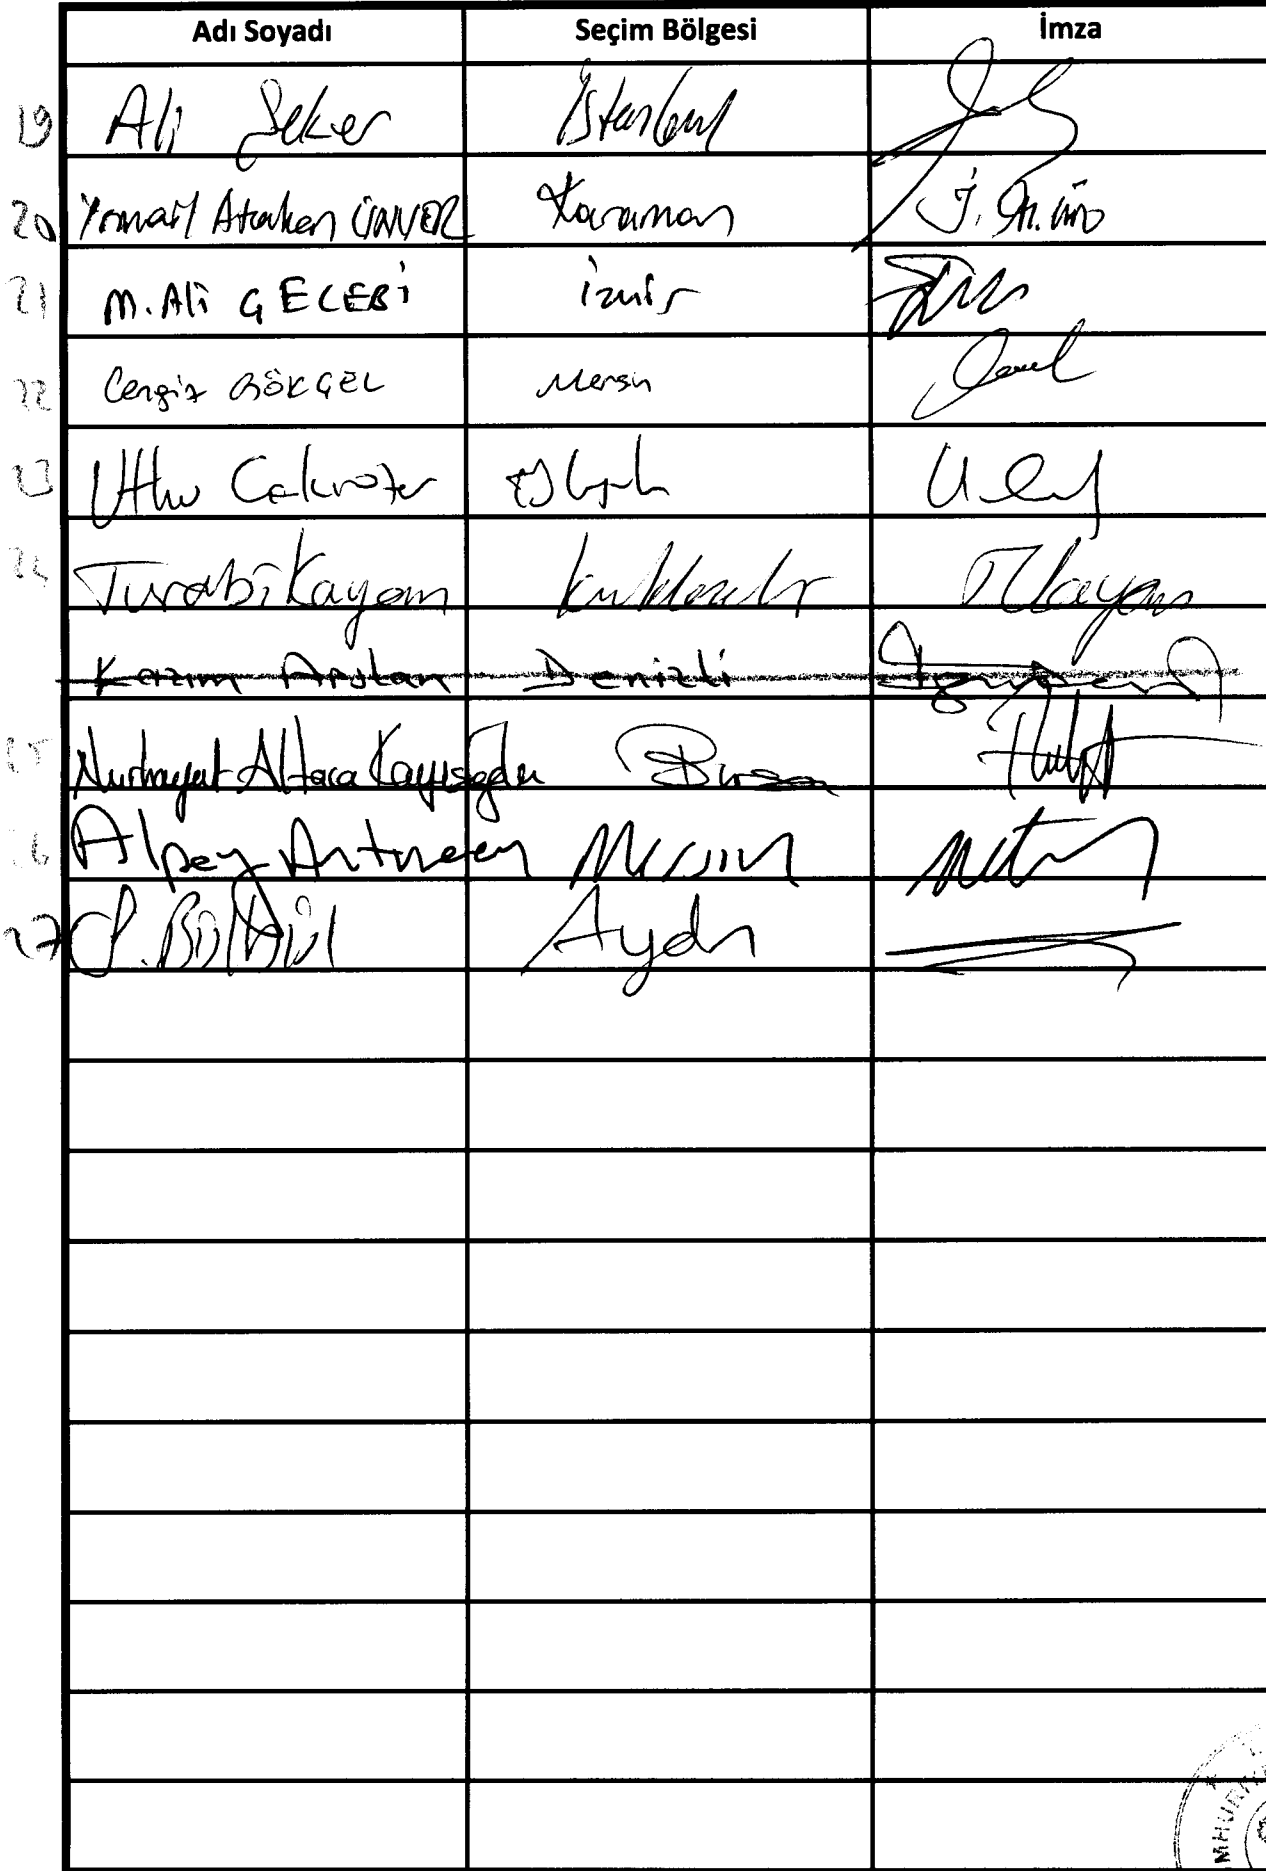 Adı Soyadı Seçim Bölgesi İmza
19 Ali Şeker İstanbul
20 İsmail Atakan ÜNVER Karaman İ. At. Ün
21 M. Ali ÇELEBİ İzmir
22 Cengiz GÖKÇEL Mersin
23 Utku Çakırözer
24 Turabi Kayan Kırklareli TKayan
Kazım Arslan Denizli
25 Nurhayat Altaca Kayışoğlu Bursa
26 Alpay Antmen Mersin
27 S. Bülbül Aydın
MHURİY